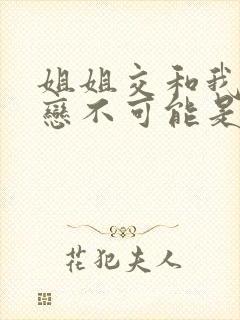 姐姐交和我
戀不可能是
花犯夫人